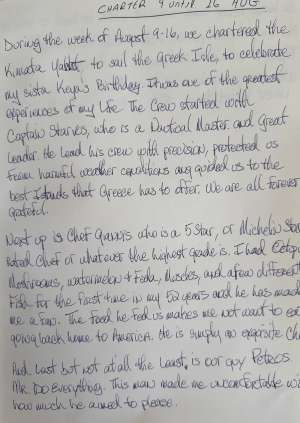 CHARTER 9 UNTIL 16 AUG
During the week of August 9-16, we chartered the
Kimata Yacht to sail the Greek Isle, to celebrate
my sista Keyus Birthday. It was one of the greatest
experiences of my life. The Crew started with
Captain Stavros, who is a Nautical Master and Great
Leader. He lead his crew with precision, protected us
from harmful weather conditions and guided us to the
best Islands that Greece has to offer. We are all forever
grateful.
Next up is Chef who is a 5 Star, or Michelin Star
Rated Chef or whatever the highest grade is. I had
Mushrooms, watermelon & Feda, Muscles, and a few different
Fish for the first time in my 52 years and he has made
me a fan. The food he fed us makes me not want to
going back home to America. He is simply an exquisite
And Last but not at all the Least, is our guy Petros
Mr. Do Everything. This man made me uncomfortable
how much he aimed to please.